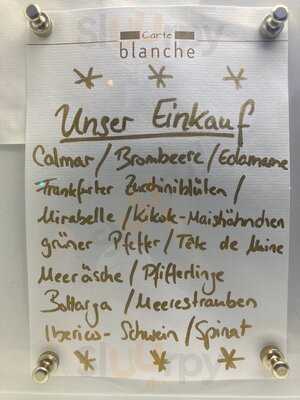 Carte
blanche
Unser Einkauf
Calmar / Brombeere / Edamame
Frankfurter Zucchiniblüten /
Mirabelle / Kikok-Maishähnchen
grüner Pfeffer / Tête de Moine
Meeräsche / Pfifferlinge
Bottarga / Meerestrauben
Iberico-Schwein / Spinat